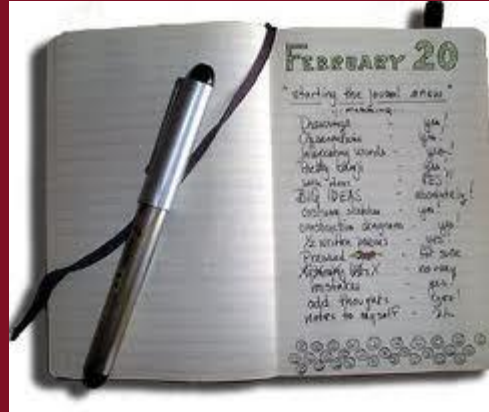 FEBRUARY 20
"starting the journal anew"
meaning
Drawings - yes!
Observations - yes
Interesting words - yes!
Pretty - yes!
- YES!
BIG IDEAS - absolutely!
costume sketches - yes!
construction diagrams - yes
½ written poems - yes!
Pressed - for sure
- no way
mistakes - yes!
odd thoughts - yes!
notes to myself -